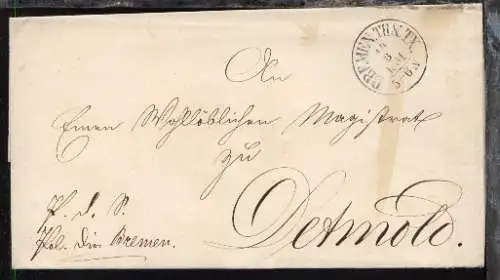 BREMEN TH. & TX.
6
5-6 N
An
Einen Wohllöblichen Magistrat
zu
Detmold.
P. d. S.
Pol. Dir. Bremen.